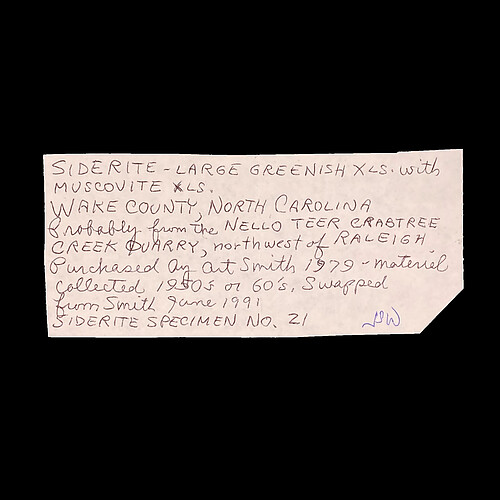 SIDERITE - LARGE GREENISH XLS. with
MUSCOVITE XLS.
WAKE COUNTY, NORTH CAROLINA
Probably from the NELLO TEER CRABTREE
CREEK QUARRY, northwest of RALEIGH.
Purchased by Art Smith 1979 - material
collected 1950s or 60's. Swapped
from Smith June 1991
SIDERITE SPECIMEN NO. 21